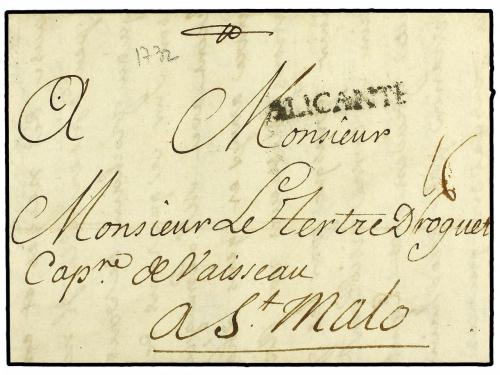 1732
ALICANTE
A Monsieur
16
Monsieur Le Tertre Droguet
Capne de Vaisseau
a St. Malo